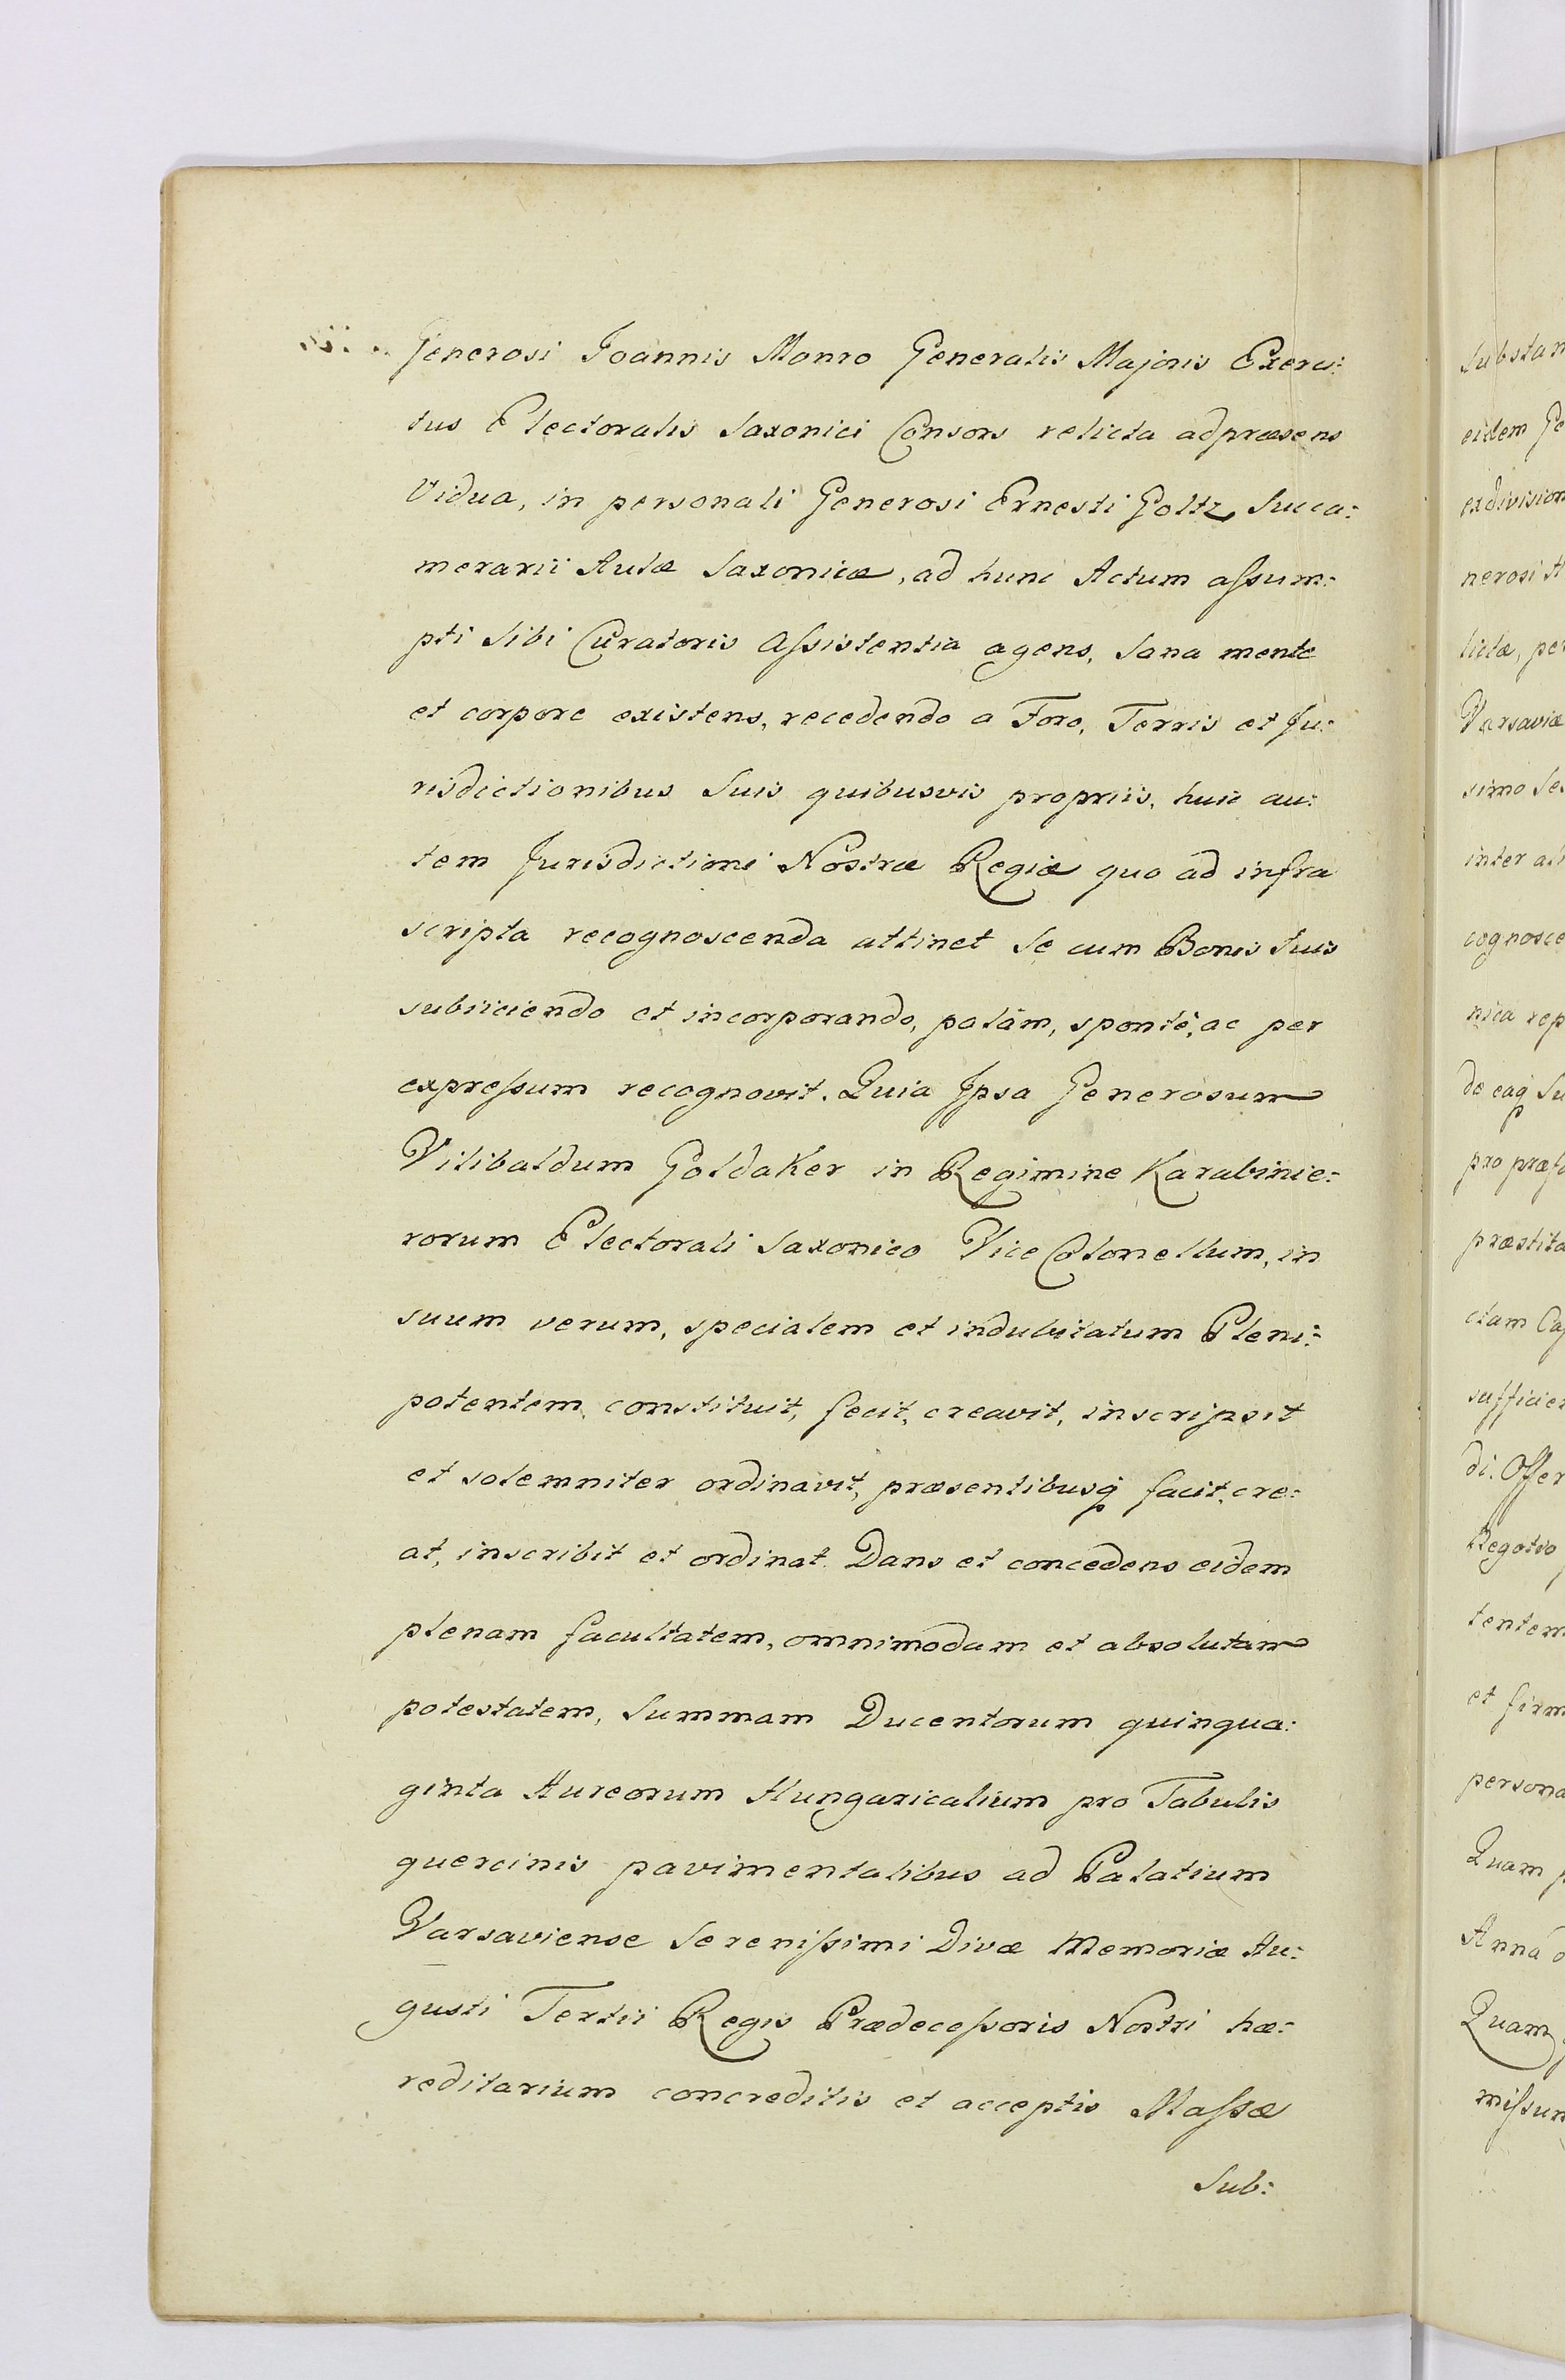 Generosi Joannis Monro Generalis Majoris Exerci:
tus Electoralis Saxonici Consors relicta adpræsens
Vidua, in personali Generosi Ernesti Goltz Succa:
merarii Aulæ Saxonicæ, ad hunc Actum aſsum:
pti sibi Curatoris Aſsistentia agens, Sana mente
et corpore existens, recedendo a Foro, Terris et Ju:
risdictionibus Suis quibusvis propriis, huic au:
tem Jurisdictioni Nostræ Regiæ quo ad infra
scripta recognoscenda attinet Se cum Bonis Suis
subiiciendo et incorporando, palàm, spontè, ac per
expreſsum recognovit. Quia Ipsa Generosum
Vilibaldum Goldaker in Regimine Karabinie:
rorum Electorali Saxonico Vice Colonellum, in
suum verum, specialem et indubitatum Pleni:
potentem, constituit, fecit, creavit, inscripsit
et solemniter ordinavit, præsentibusq́ facit, cre:
at, inscribit et ordinat. Dans et concedens eidem
plenam facultatem, omnimodam et absolutam
potestatem, Summam Ducentorum quinqua:
ginta Aureorum Hungaricalium pro Tabulis
quercinis pavimentalibus ad Palatium
Varsaviense Sereniſsimi Divæ Memoriæ Au:
gusti Tertii Regis Prædeceſsoris Nostri hæ:
reditarium concreditis et acceptis Maſsæ
Sub:
Substan
eidem Ge
exdivision
nerosi A
lictæ, per
Varsaviæ
simo Se
inter ali
cognosce
nica rep
de eaq́ Su
pro præf
præstita
ctam Cap
sufficien
di. Offer
Negotio
tentem
et firm
persona
Quam p
Anna
Quam
miſsum